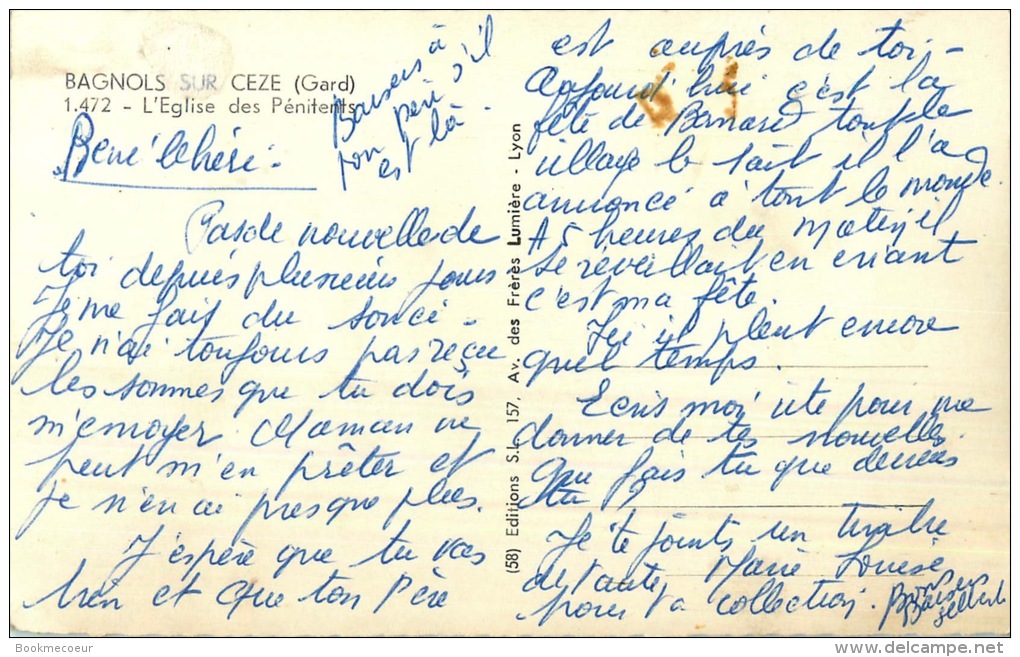 BAGNOLS SUR CEZE (Gard)
1.472 - L'Eglise des Pénitents
René chéri -
Pas de nouvelle de
toi depuis plusieurs jours
Je me fais du souci -
Je n'ai toujours pas reçu
les sommes que tu dois
m'envoyer. Maman ne
peut m'en prêter et
je n'en ai presque plus.
J'espère que tu vas
bien et que ton Père
est auprès de toi -
Aujourd'hui c'est la
fête de Bernard tout le
village le sait il l'a
annoncé à tout le monde.
A 5 heures du matin il
se réveillait en criant
c'est ma fête.
Ici il pleut encore
quel temps.
Ecris moi vite pour me
donner de tes nouvelles.
Que fais tu que deviens
tu ?
Je te joints un timbre
de tante Marie Louise
pour ta collection.
Baisers à
ton père s'il
est là.
(58) Editions S.L. 157, Av. des Frères Lumière - Lyon
Bookmecoeur
www.delcampe.net